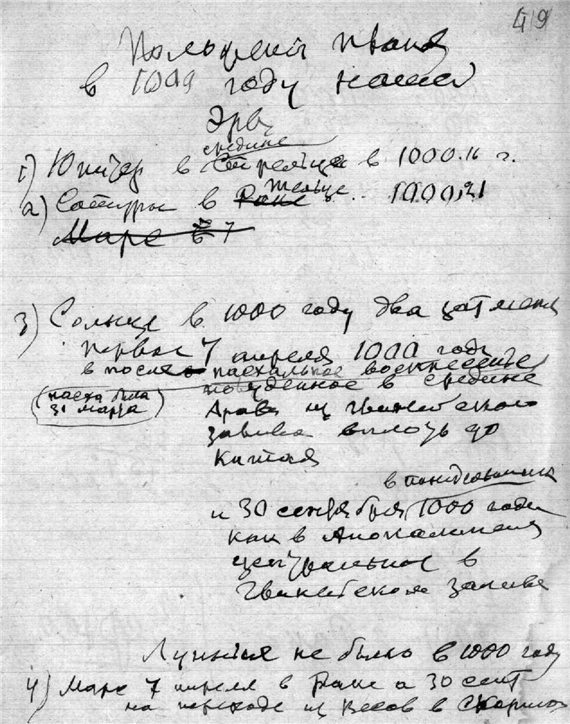 49
в 1000 году нашей
Эры
средине
1) Юпитер в Стрельце в 1000.16 г.
Тельце
2) Сатурн в Раке .. 1000,21
Марс в 7
3) Солнце в 1000 году два затмения
первое 7 апреля 1000 года
в после пасхальное воскресенье
(пасха была
31 марта)
полуденное в средине
Аравии из Гвинейского
залива вплоть до
Китая
в понедельник
и 30 сентября 1000 года
как в Апокалипсисе
центральное в
Гвинейском заливе
Лунных не было в 1000 году
4) Марс 7 апреля в Раке а 30 сент
на переходе из Весов в Скорпион